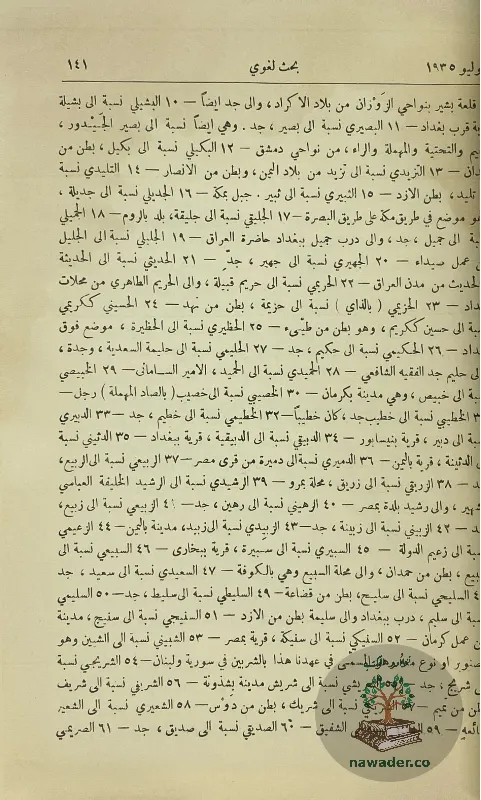 وليو ١٩٣٥ بحث لغوي ١٤١
قلعة بشير بنواحي الزَوْزان من بلاد الاكراد، والى جد ايضاً — ١٠ البشيلي نسبة الى بشيلة
ية قرب بغداد — ١١ البصيري نسبة الى بصير ، جد . وهي ايضاً نسبة الى بصير الجَيْدور ،
يم والتحتية والمهملة والراء ، من نواحي دمشق — ١٢ البكيلي نسبة الى بكيل ، بطن من
دان — ١٣ التزيدي نسبة الى تزيد من بلاد اليمن، وبطن من الانصار — ١٤ التليدي نسبة
تليد، بطن الازد — ١٥ الثبيري نسبة الى ثبير . جبل بمكة — ١٦ الجديلي نسبة الى جديلة ،
هو موضع في طريق مكة على طريق البصرة — ١٧ الجليقي نسبة الى جليقة، بلد بالروم — ١٨ الجميلي
بة الى جميل ، جد ، والى درب جميل ببغداد حاضرة العراق — ١٩ الجليلي نسبة الى الجليل
عمل صيداء — ٢٠ الجهيري نسبة الى جهير ، جدّ — ٢١ الحديثي نسبة الى الحديثة
لحديث من مدن العراق — ٢٢ الحريمي نسبة الى حريم قبيلة ، والى الحريم الطاهري من محلات
داد — ٢٣ الحزيمي ( بالذاي ) نسبة الى حزيمة ، بطن من نهد — ٢٤ الحسيني ككريمي
بة الى حسين ككريم ، وهو بطن من طيّىء — ٢٥ الحظيري نسبة الى الحظيرة ، موضع فوق
داد — ٢٦ الحكيمي نسبة الى حكيم ، جد — ٢٧ الحليمي نسبة الى حليمة السعدية ، وجدة ،
لى حليم جد الفقيه الشافعي — ٢٨ الحميدي نسبة الى الحميد ، الامير السـاماني— ٢٩ الخبيصي
بة الى خبيص ، وهي مدينة بكرمان — ٣٠ الخصيبي نسبة الى خصيب( بالصاد المهملة ) رجل—
٣ الخطيبي نسبة الى خطيب جد، كان خطيباً—٣٢ الخطيمي نسبة الى خطيم ، جد —٣٣ الدبيري
بة الى دبير ، قرية بنيسابور — ٣٤ الدبيقي نسبة الى الدبيقية ، قرية ببغداد — ٣٥ الدثيني نسبة
ى الدثينة ، قرية باليمن — ٣٦ الدميري نسبة الى دميرة من قرى مصر— ٣٧ الربيعي نسبة الى الربيع،
د — ٣٨ الزريقي نسبة الى زريق ، محلة بمرو — ٣٩ الرشيدي نسبة الى الرشيد الخليفة العباسي
هير ، والى رشيد بلدة بمصر — ٤٠ الرهيني نسبة الى رهين ، جد— ٤١ الزبيعي نسبة الى زبيع،
د — ٤٢ الزبيني نسبة الى زبينة ، جد—٤٣ الزبيدي نسبة الى زبيد، مدينة باليمن— ٤٤ الزعيمي
بة الى زعيم الدولة — ٤٥ السبيري نسبة الى سـبيرة ، قرية ببخارى — ٤٦ السبيعي نسبة الى
بيع ، بطن من همدان ، والى محلة السبيع وهي بالكوفة — ٤٧ السعيدي نسبة الى سعيد ، جد
٤ السليحي نسبة الى سليـح، بطن من قضاعة— ٤٩ السليطي نسبة الى سليط، جد—٥٠ السليمي
بة الى سليم ، درب ببغداد والى سليمة بطن من الازد — ٥١ السنيجي نسبة الى سنيج، مدينة
ن عمل كرمان — ٥٢ السنيكي نسبة الى سنيكة ، قرية بمصر — ٥٣ الشبيني نسبة الى الشبين وهو
صنوبر او نوع منه وهو المسمى في عهدنا هذا بالشربين في سورية ولبنان—٥٤ الشريحي نسبة
شريح ، جد — نسبة الى شريش مدينة بشذونة — ٥٦ الشريفي نسبة الى شريف
طن من تميم — نسبة الى شريك، بطن من دَوْس — ٥٨ الشعيري نسبة الى الشعير
ائعه — ٥٩ الشفيق — ٦٠ الصديقي نسبة الى صديق ، جد — ٦١ الصريمي
نوادر الكتب
nawader.co